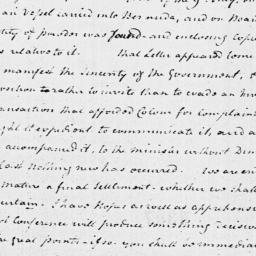 an Vessel carried into Bermuda, and on Boar
tity of powder was found and enclosing Copie
s relative to it. That Letter appeared
manifest the Sincerity of the Government, &
rather to invite than to evade an
ansaction that afforded Colour for Complain
it expedient to communicate it, and a
accompanied it, to the minister without
Nothing new has occurred. We are
mature a final Settlement. whether we shall
certain. I have Hopes as well as apprehensio
Conference will produce something
the great points—if so you shall be immedia